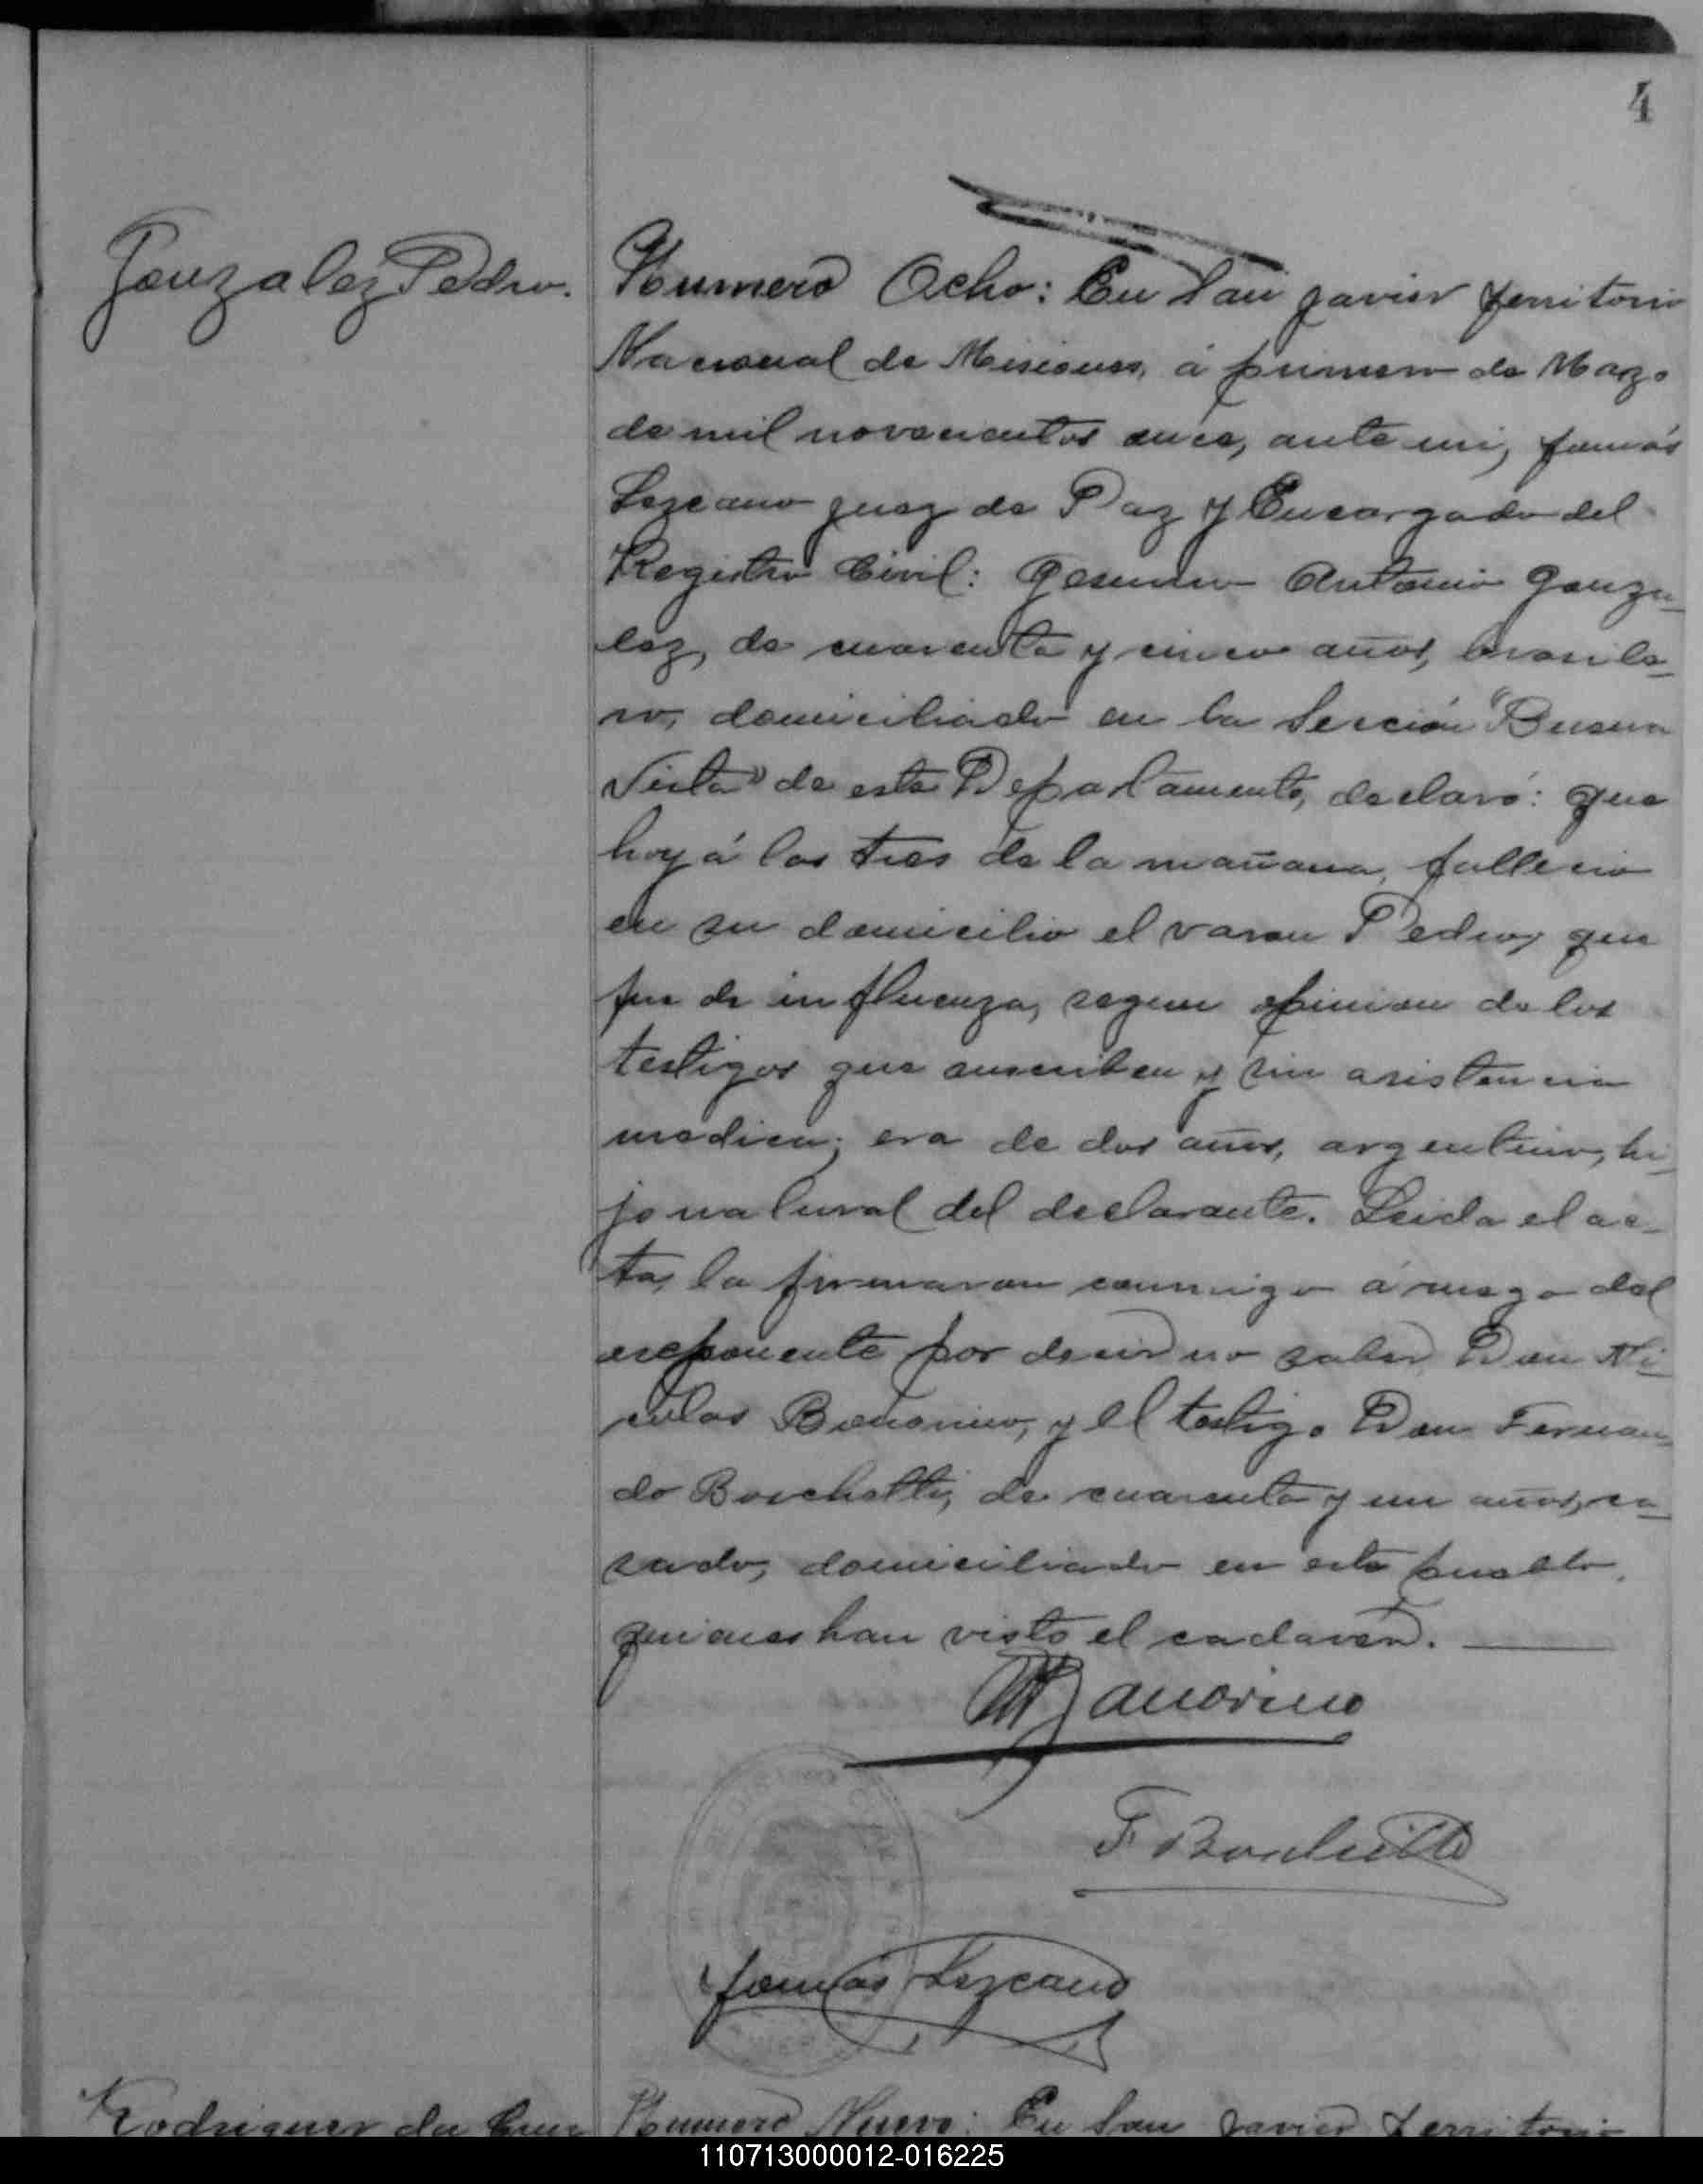 4
Gonzalez Pedro.
Numero Ocho: En San Javier Territorio
Nacional de Misiones, á primero de Marzo
de mil novecientos once, ante mi, Tomás
Lezcano Juez de Paz y Encargado del
Registro Civil: Antonio Gonza-
lez, de cuarenta y cinco años, brasile-
ro, domiciliado en la Sección "Buena
Vista" de este Departamento, declaró: Que
hoy á las tres de la mañana, falleció
en su domicilio el varon Pedro, que
fue de influenza, segun opinion de los
testigos que suscriben y sin asistencia
medica; era de dos años, argentino, hi-
jo natural del declarante. Leida el ac-
ta, la firmaron conmigo á ruego del
exponente por decir no saber, Don Ni-
colas Bonorino, y el testigo Don Fernan-
do Borchetti, de cuarenta y un años, ca-
sado, domiciliado en este pueblo,
quienes han visto el cadaver.
NBonorino
F Borchetti
Tomás Lezcano
Rodriguez da Cruz
Numero Nueve: En San Javier Territorio
110713000012-016225